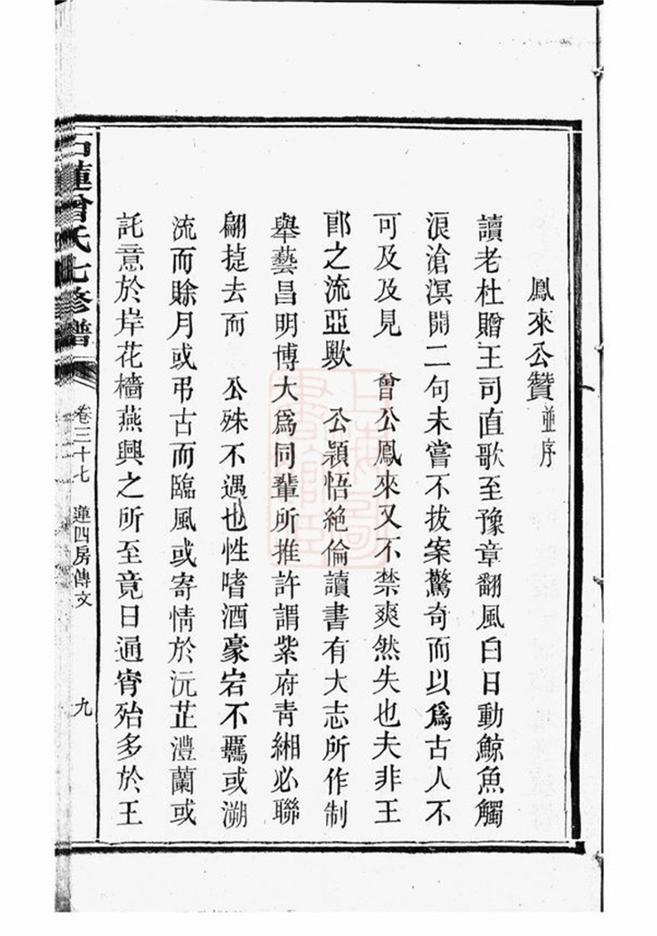 鳳來公贊並序
讀老杜贈王司直歌至豫章翻風白日動鯨魚觸
浪滄溟開二句未嘗不拔案驚奇而以爲古人不
可及及見　曾公鳳來又不禁爽然失也夫非王
郎之流亞歟　公穎悟絕倫讀書有大志所作制
舉藝昌明博大爲同輩所推許謂紫府青緗必聯
翩㨗去而　公殊不遇也性嗜酒豪宕不羈或溯
流而賒月或弔古而臨風或寄情於沅芷澧蘭或
託意於岸花檣燕興之所至竟日通宵殆多於王
石蓮曾氏七修譜
卷三十七　蓮四房傳文
九